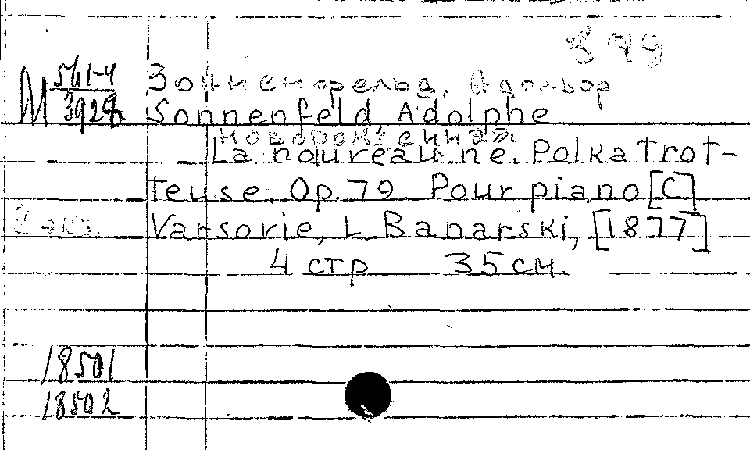 879
М 561-4
3928 Зонненфельд, Адольф
Sonnenfeld Adolphe
Новорожденная
La noureau né. Polka trot-
teuse. Op. 79 Pour piano [C]
Varsovie, L. Banarski, [1877]
4 стр 35 см.
18501
18502